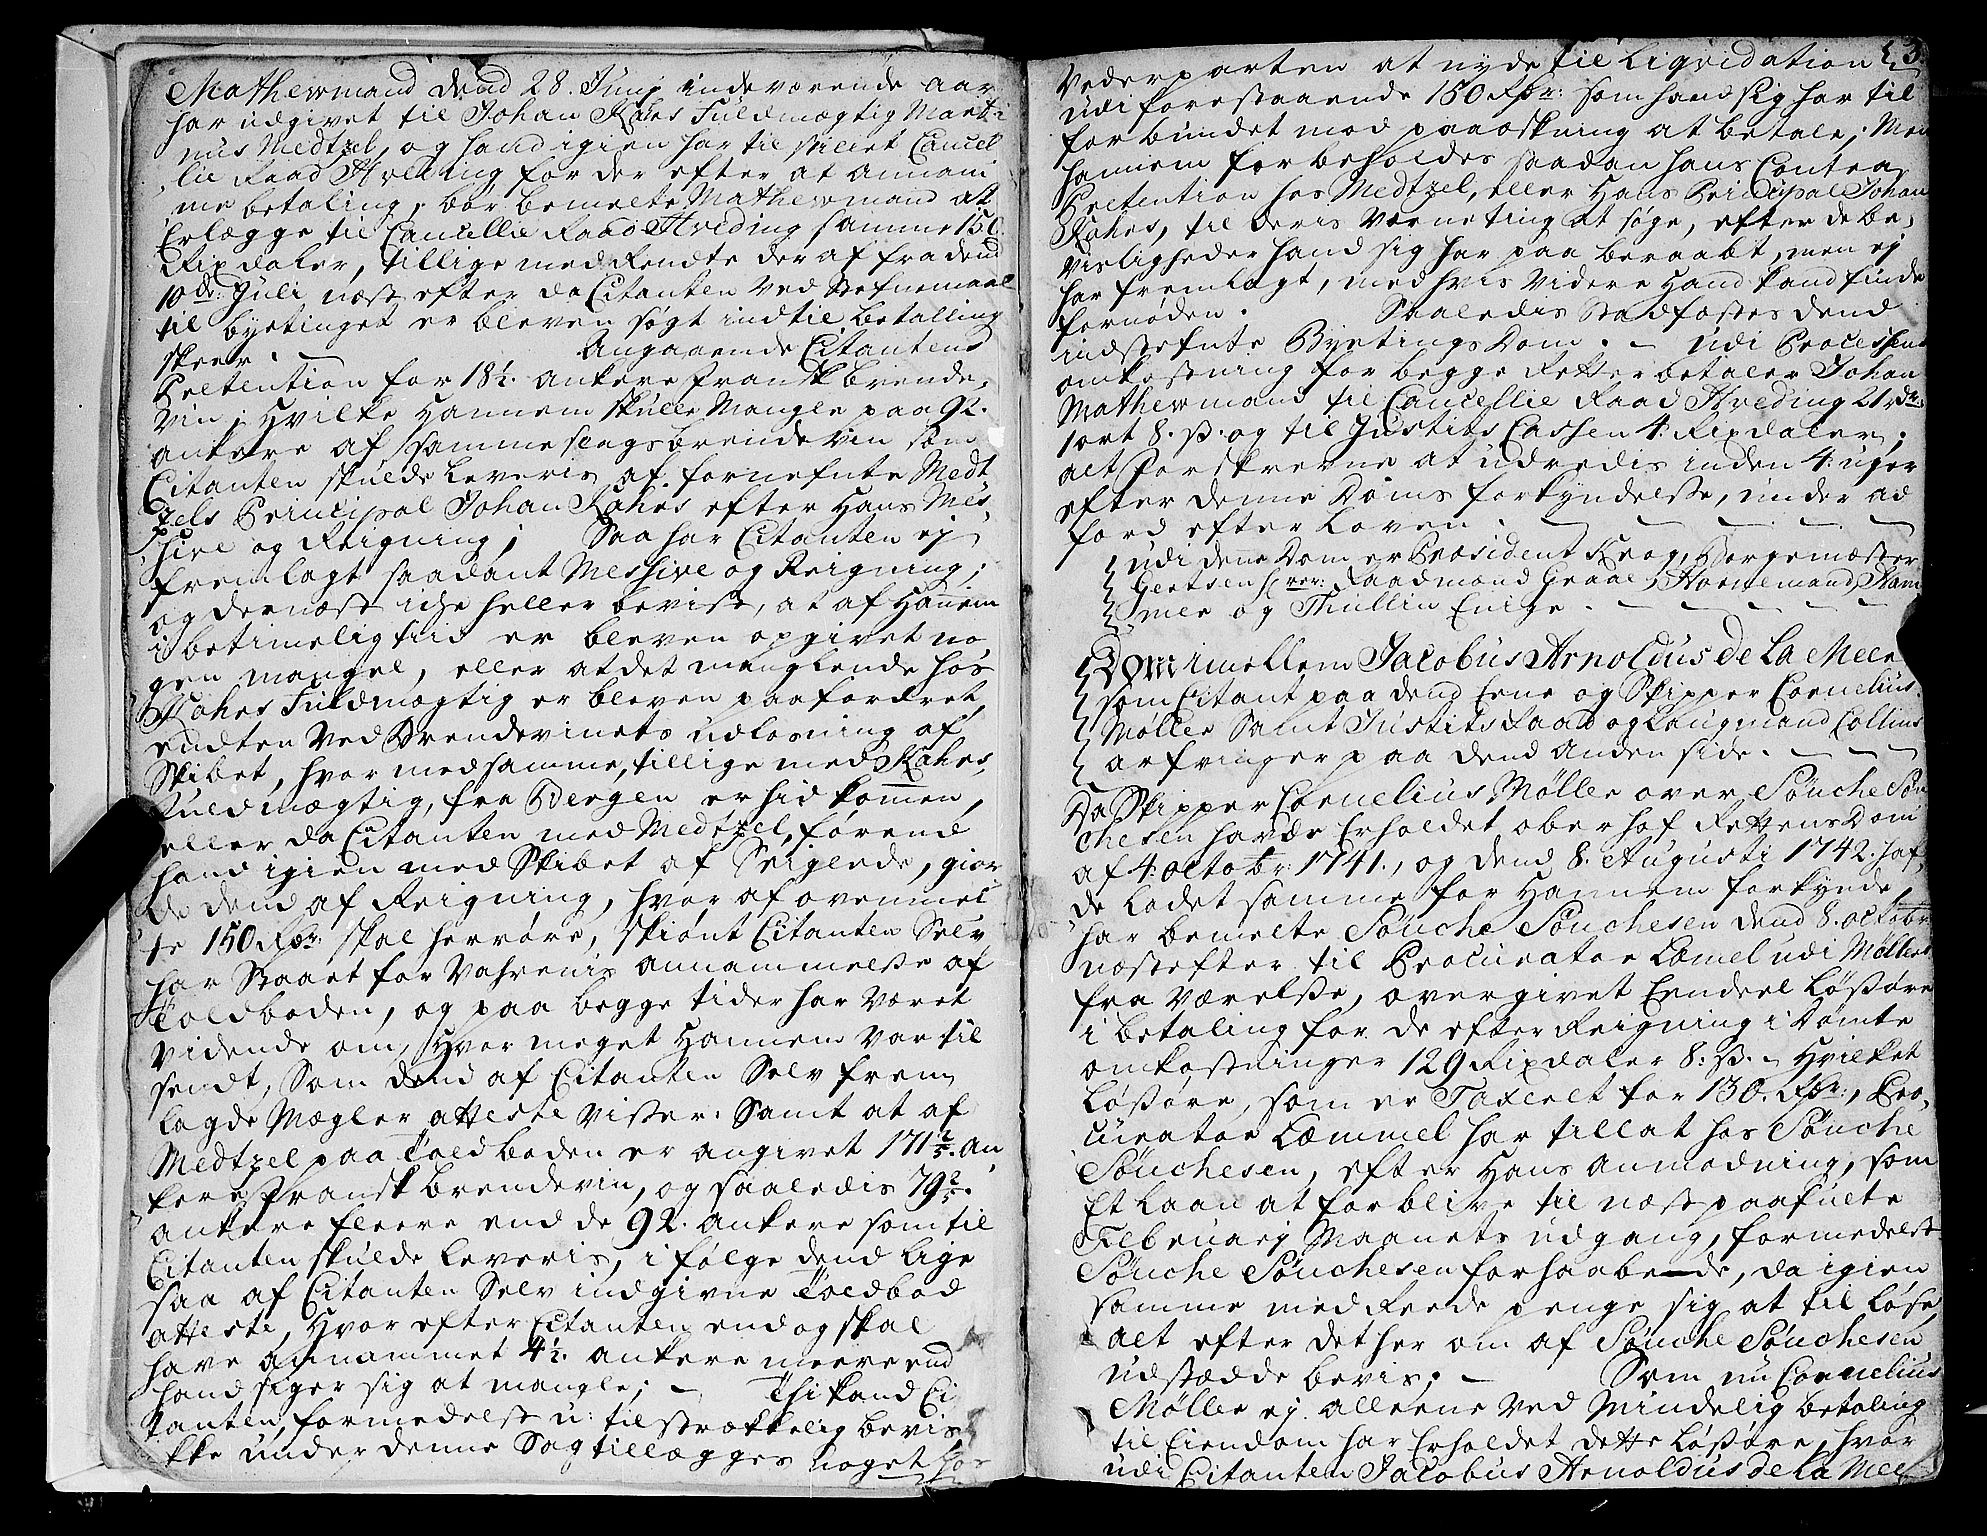 Mathewmand dend 28. Junj indeværende aar
har udgivet til Johan Kahrs Fuldmægtig Marti-
nus Medtzel, og hand igien har tilstillet Cancel
lie Raad Hveding for der efter at annam
me betaling, bør bemelte Mathewmand at
Erlægge til Cancellie Raad Hveding samme 150.
Rixdaler, tillige med Rendte der af fra dend
10de Julj næst efter da Citanten ved Stefnemaal
til byetinget er bleven søgt indtil betalling
skeer. Angaaende Citantens
Pretention for 18½. ankere Fransk brende-
vin, Hvilke Hannem skulle Mangle paa 92.
ankere af samme slags brendevin som
Citanten skulde leveris af fornefnte Medt
zels Principal Johan Kahrs efter Hans Mis
sive og Reigning; Saa har Citanten ej
fremlagt saadant Messive og Reigning,
og dernæst icke heller bevist, at af Hannem
i betimelig tid er bleven opgivet no
gen mangel, eller at det manglende hos
Kahrs Fuldmægtig er bleven paafordret,
endten ved Brendevinets udlosning af
Skibet, hvor med samme, tillige med Kahrs
Fuldmægtig, fra Bergen er hid kommen,
eller da Citanten med Medtzel, førend
hand igien med Skibet af Seiglede, gior
de dend af Reigning, hvor af ovenmel
te 150 Rdr: skal herrøre, skiønt Citanten Selv
har Staaet for Vahrenis annammelse af
Toldboden, og paa begge tider har været
vidende om, Hvor meget Hannem var til
sendt, Som dend af Citanten Selv frem
lagde Mægler atteste viser. Samt at af
Medtzel paa Toldboden er angivet 171⅖. an
kere Fransk brendevin, og saaledis 79⅖.
ankere fleere end de 92. ankere som til
Citanten skulde leveris, i følge dend lige
saa af Citanten Selv indgivne Toldbod
atteste, Hvor efter Citanten endog skal
have annammet 4½. ankere meere end
hand siger sig at mangle; - Thi kand Ci
tanten, formedelst u: tilstrækkelig bevis
kke under denne Sag tillægges noget hos
3.
Vederparten at nyde til Liqvidation
udi forestaaende 150 Rdr: som hand sig har til
forbundet mod paaeskning at betale; Men
hannem forbeholdes saadan hans Contra
Pretention hos Medtzel, eller Hans Principal Johan
Kahrs, til deris værneting at søge, efter de be-
visligheder hand sig har paa beraabt, men ej
har fremlagt, med hvis videre Hand kand finde
fornøden. Saaledis Stadfæstes dend
indstefnte Byetings Dom. - Udi Processens
omkostning for begge Retter betaler Johan
Mathewmand til Cancellie Raad Hveding 21 rdr
1 ort 8. ß. og til Justits Cassen 4: Rixdaler,
alt Forskrevne at udredis inden 4: uger
efter denne Doms forkyndelse, under ad
færd efter Loven.
udi denne Dom er Præsident Krog, Borgemæster
Gertsen, Raadmænd Graae, Hornemand, Ham
mer og Thullin Enige.
Dom imellem Jacobus Arnoldus de La Meer
som Citant paa dend Eene og Skipper Cornelius
Møller Samt Justitsraad og Laugmand Collins
arfvinger paa dend anden side.
Da Skipper Cornelius Møller over Sønche Søn
chesen havde Erholdet oberhof Rettens Dom
af 4: octobr: 1741., og dend 8. Augusti 1742. haf
de ladet samme for Hannem forkynde,
har bemelte Sønche Sønchesen dend 8. octobr
næstefter til Procurator Læmel udi Møllers
fra værelse, overgivet Eendeel Løsøre
i betaling for de efter Reigning i Dømte
omkostninger 129 Rixdaler 8: ß. - Hvilket
Løsøre, som er Taxeret for 130. Rdr:, Pro-
curator Læmmel har tilladt hos Sønche
Sønchesen, efter Hans anmodning, som
Et Laan at forblive til næst paafulte
Februarij Maanets udgang, formedelst
Sønche Sønchesen forhaabede, da igien
samme med Reede penge sig at til løse,
alt efter det her om af Sønche Sønchesen
udstædde bevis; - Som nu Cornelius
Møller ej alleene ved Mindelig betaling
til Eiendom har Erholdet dette Løsøre, hvor
udi Citanten Jacobus Arnoldus de la Meer